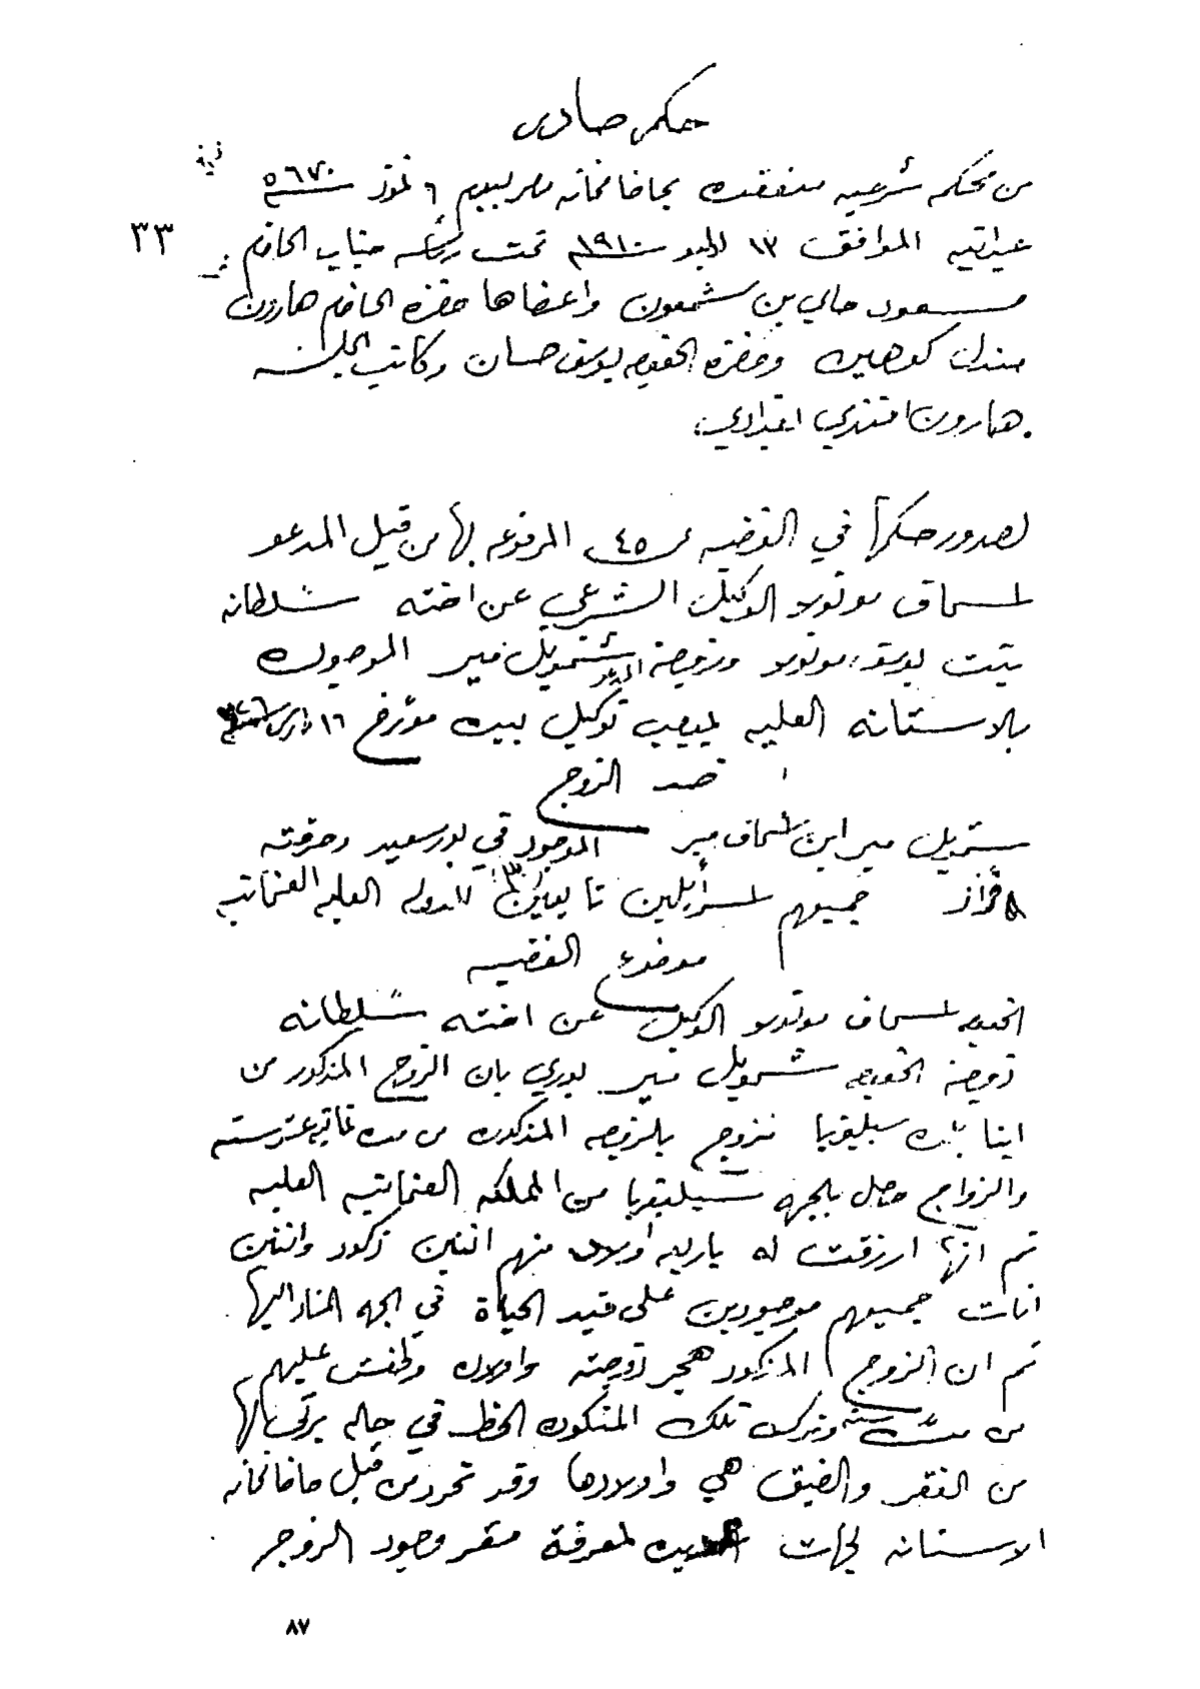 حكم صادر
من محكمه شرعيه منعقده بحاخامخانه مصر بيوم ٦ تموز سنة ٥٦٧٠
عبرانيه الموافق ١٣ لوليو سنة ١٩١٠ تحت رئاسه جناب الحاخام
٣٣
مسعود حاي بن شمعون واعضاها حضره الحاخام هارون
مندل كوهين وحضرة الخواجه يوسف حسان وكاتب الجلسه
هارون افندي
لصدور حكمها في القضيه نمرة ٤٥ المرفوعه لها من قبل المدعو
اسحاق موتولا الوكيل الشرعي عن اخته سلطانه
بنت موتولا وزوجة شمويل مير الموجوده
بالاستانه العليه بموجب توكيل بيده مؤرخ ١٦ مارس
ضد الزوج
شمويل مير ابن اسحاق مير الموجود في بورسعيد وحرفته
جميعهم اسرائيلين تابعين للدوله العليه العثمانيه
موضوع القضيه
الخواجه اسحاق موتولا الوكيل عن اخته سلطانه
زوجة الخواجه شمويل مير يدعي بان الزوج المذكور من
تزوج بالزوجه المذكوره من مده ثمانية عشر سنه
والزواج حصل بالجهه من المملكه العثمانيه العليه
ثم انها ارزقت له باربعه اولاد منهم اثنين ذكور واثنين
اناث جميعهم موجودين على قيد الحياة في الجهه المشار اليها
ثم ان الزوج المذكور هجر زوجته واولاده عليهم
من مدة سنه وترك تلك المنكوده الحظ في حاله يرثى لها
من الفقر والضيق هي واولادها وقد تحرر من قبل حاخامخانه
الاستانه لجهات لمعرفة مقر وجود الزوج
٨٧